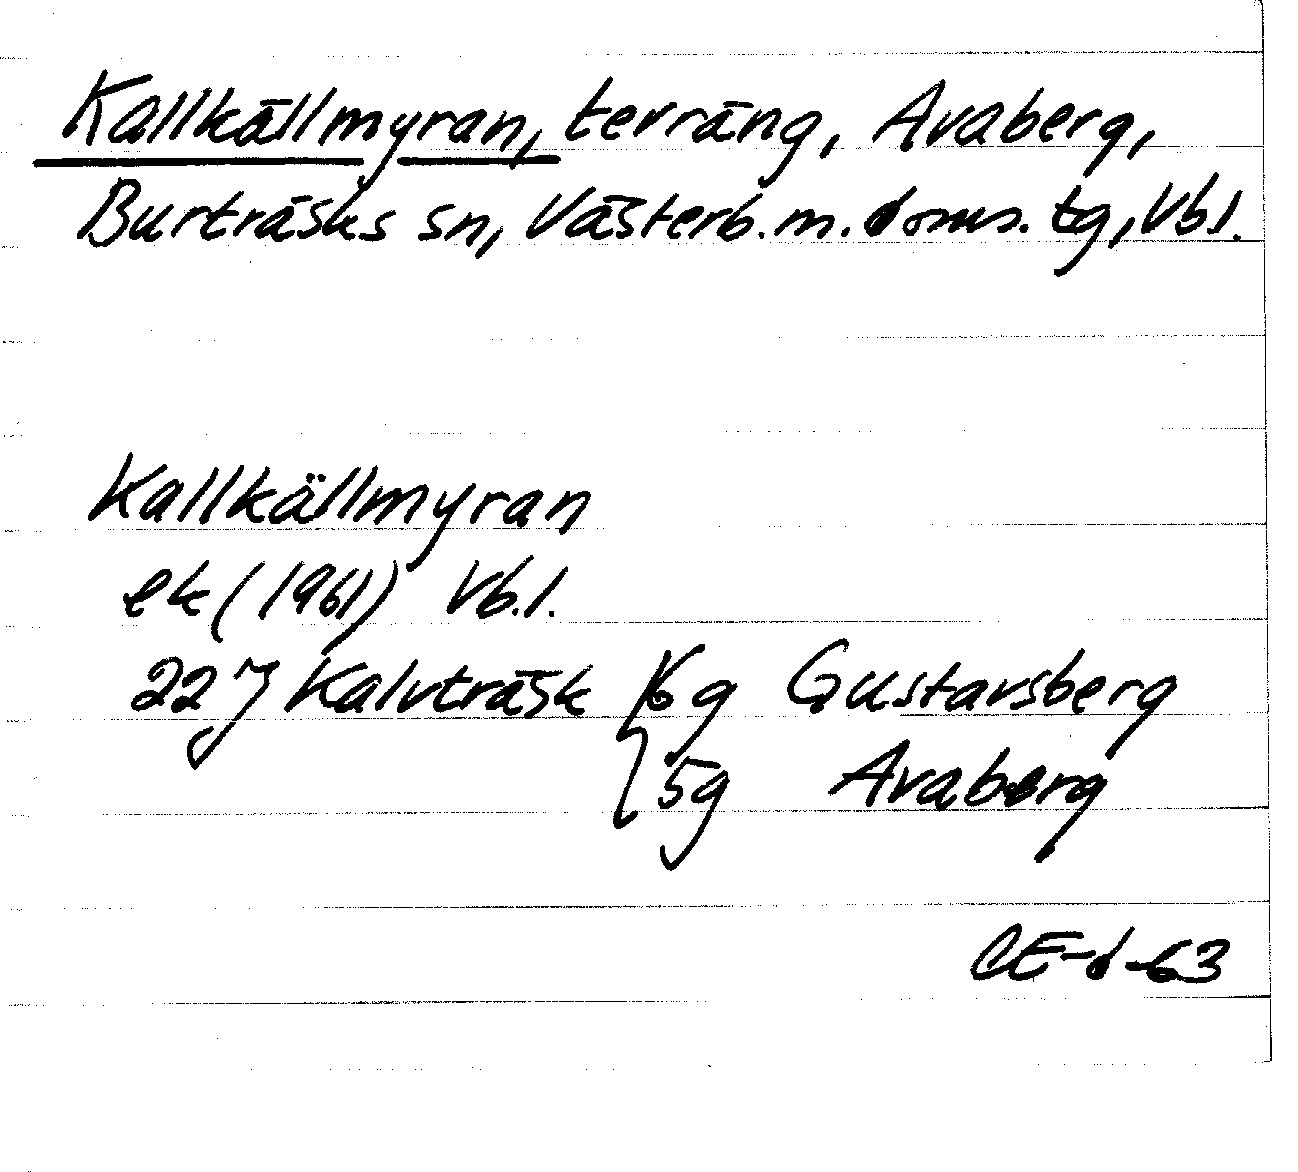 Kallkällmyran, terräng, Avaberg,
Burträsks sn, Västerb. m. doms. tg, Vb l.
Kallkällmyran
ek (1961) Vb. l.
22 J Kalvträsk 6 g Gustavsberg
5 g Avaberg
CE-d-63